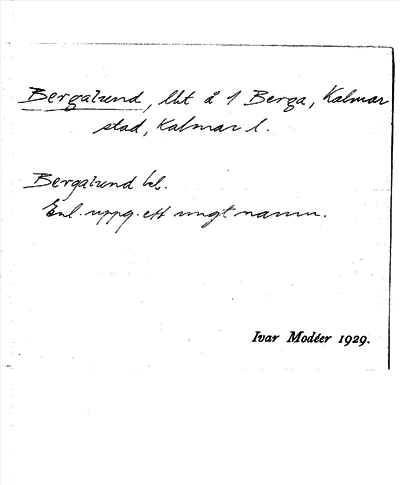 Bergalund, lht å 1 Berga, Kalmar
stad, Kalmar l.
Bergalund bl.
Enl. uppg. ett ungt namn.
Ivar Modéer 1929.